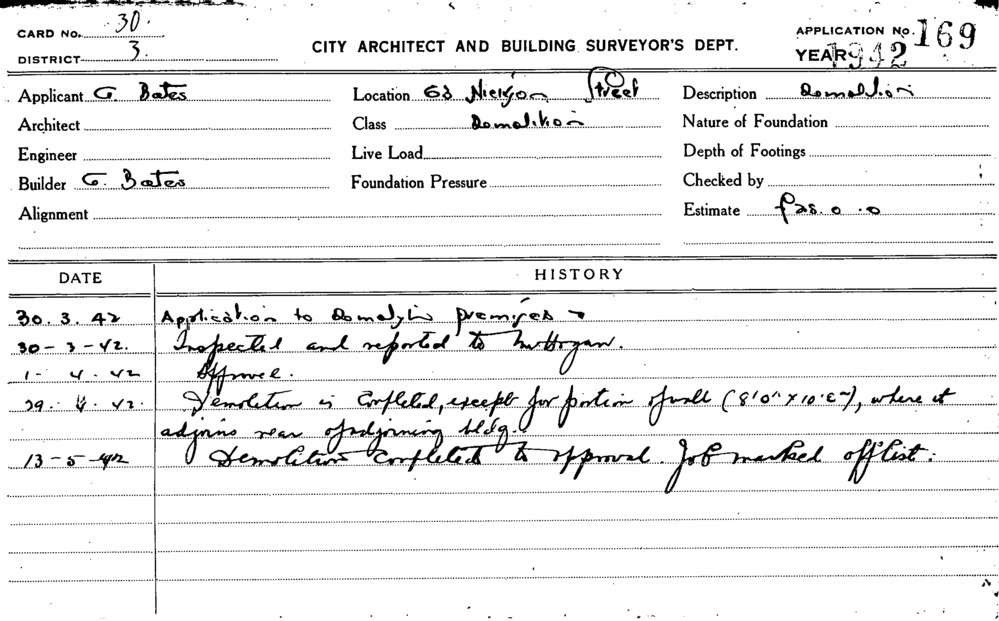 CARD No. 30.
DISTRICT 3.
CITY ARCHITECT AND BUILDING SURVEYOR'S DEPT.
APPLICATION No. 169
YEAR 1942
Applicant G. Bates
Location 63 Street
Description Demolition
Architect
Class Demolition
Nature of Foundation
Engineer
Live Load
Depth of Footings
Builder G. Bates
Foundation Pressure
Checked by
Alignment
Estimate £25.0.0
DATE HISTORY
30.3.42 Application to premises
30-3-42. Inspected and reported to Mr Hogan.
1-4-42 Approved.
29.4.42. Demolition is Completed, except for portion of wall (8'0" x 10'6"), where it
adjoins rear of adjoining bldg.
13-5-42 Demolition Completed to approval. Job marked off list.